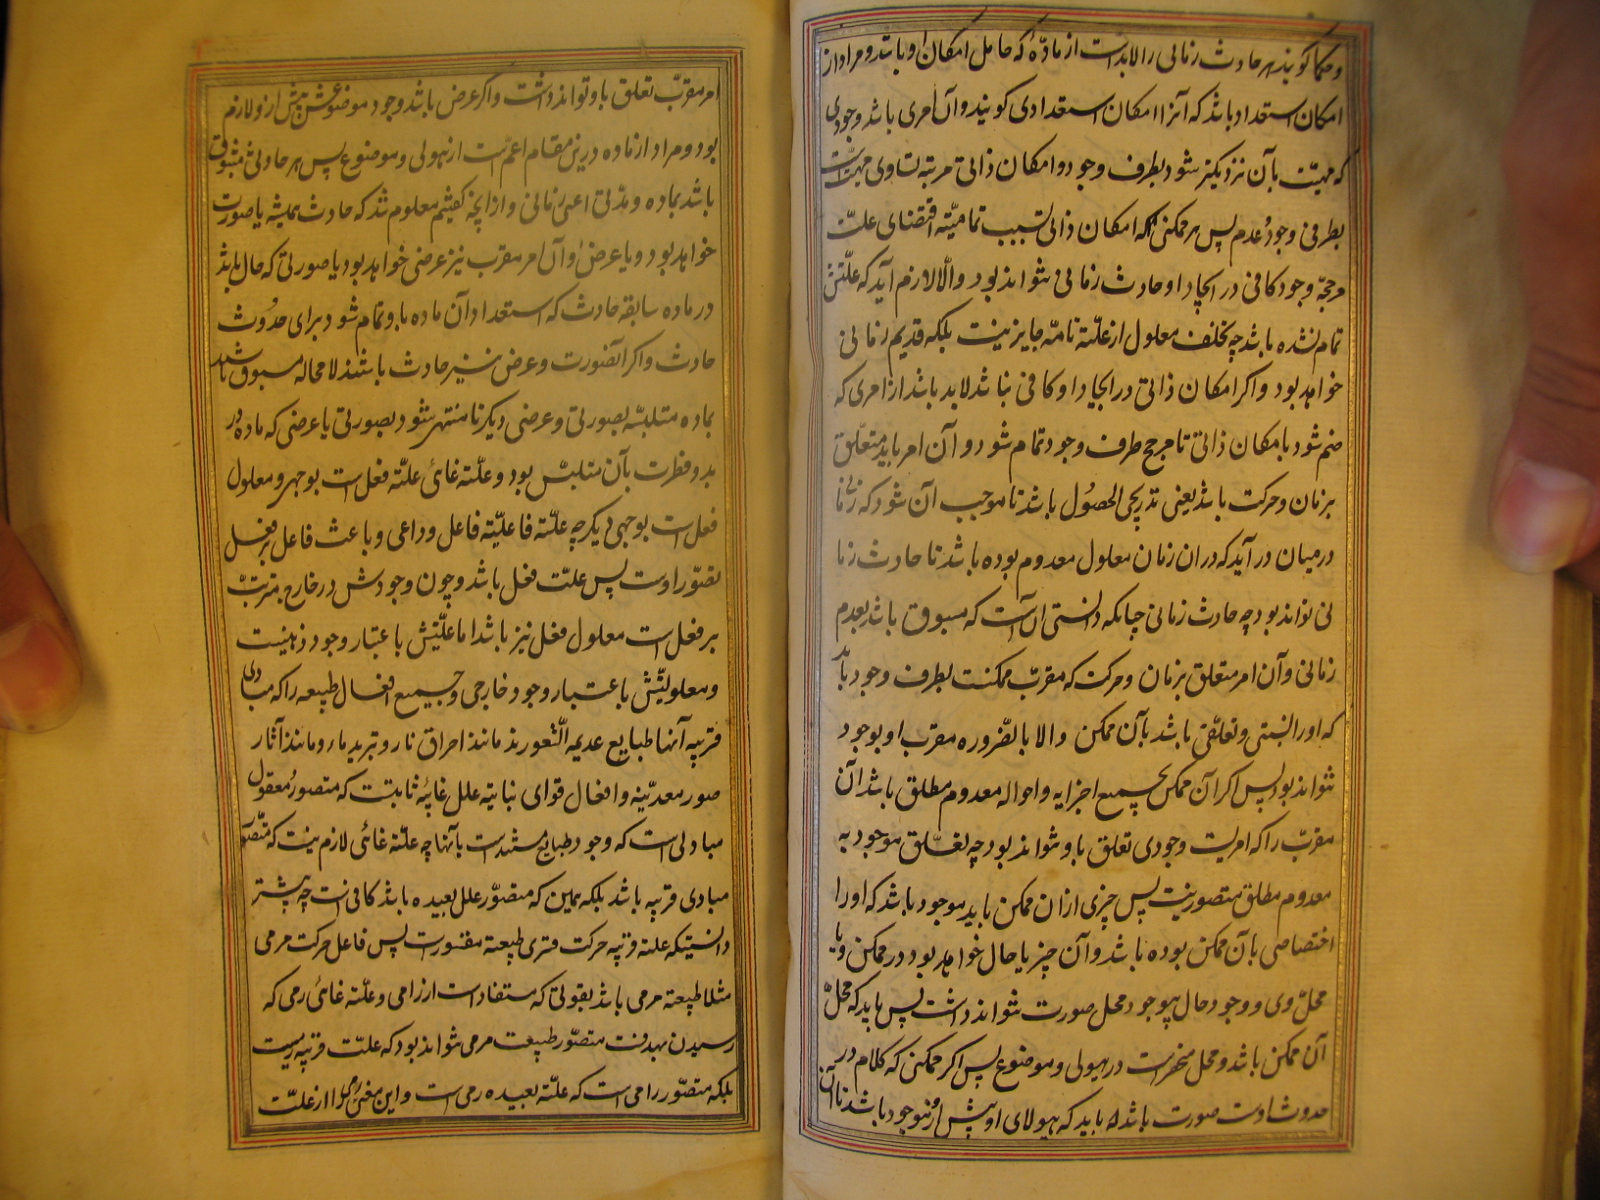 و حکما گویند هر حادث زمانی را لابد است از مادّه که حامل امکان او باشد و مراد از
امکان استعداد باشد که آنرا امکان استعدادی گویند و آن امری باشد وجودی
که مهیّت بآن نزدیکتر شود بطرف وجود و امکان ذاتی مرتبه تساوی مهیّت است
بطرفی وجود و عدم پس هر ممکنی که امکان ذاتی بسبب تمامیّته اقتضای علت
مرجحه وجود کافی در ایجاد او حادث زمانی نتواند بود والّا لازم آید که علّتش
تمام نشده باشد چه تخلف معلول از علّته تامّه جایز نیست بلکه قدیم زمانی
خواهد بود و اگر امکان ذاتی در ایجاد او کافی نباشد لابد باشد از امری که
ضم شود بامکان ذاتی تا مرجح طرف وجود تمام شود و آن امر باید متعلّق
بزمان و حرکت باشد یعنی تدریجی الحصول باشد تا موجب آن شود که زمانی
در میان در آید که در ان زمان معلول معدوم بوده باشد تا حادث زما
نی تواند بود چه حادث زمانی چنانکه دانستی آن است که مسبوق باشد بعدم
زمانی و آن امر متعلق بزمان و حرکت که مقرّب ممکنست بطرف وجود باید
که او را نسبتی و تعلّقی باشد بآن ممکن والا بالضّروره مقرب او بوجود
نتواند بود پس اگر آن ممکن بجمیع اجزایه و احواله معدوم مطلق باشد آن
مقرّب را که امریست وجودی تعلق باو نتواند بود چه تعلّق موجود به
معدوم مطلق متصور نیست پس چیزی از ان ممکن باید موجود باشد که او را
اختصاصی بآن ممکن بوده باشد و آن چیز یا حال خواهد بود در ممکن و یا
محلّ وی و وجود حال بی وجود محل صورت نتواند داشت پس باید که محلّ
آن ممکن باشد و محل منحصر است در هیولی و موضوع پس اگر ممکنی که کلام در
حدوث اوست صورت باشد باید که هیولای او پیش از او موجود باشد تا آن
امر مقرّب تعلق باو تواند داشت و اگر عرض باشد وجود موضوعش پیش از و لازم
بود و مراد از ماده درین مقام اعم است از هیولی و موضوع پس هر حادثی مسبوق
باشد بماده و مدّتی اعنی زمانی و از آنچه گفتیم معلوم شد که حادث همیشه یا صورت
خواهد بود و یا عرض و آن امر مقرب نیز عرضی خواهد بود یا صورتی که حال باشد
در ماده سابقه حادث که استعداد آن ماده باو تمام شود برای حدوث
حادث و اگر آنصورت و عرض نیز حادث باشند لا محاله مسبوق باشند
بماده متلبسّه بصورتی و عرضی دیگر تا منتهی شود بصورتی یا عرضی که ماده در
بدو فطرت بآن متلبّس بود و علّته غائی علّته فعل است بوجهی و معلول
فعل است بوجهی دیگر چه علّته فاعلیّته فاعل و داعی و باعث فاعل بر فعل
تصوّر اوست پس علّت فعل باشد و چون وجودش در خارج مترتّب
بر فعل است معلول فعل نیز باشد اما علّیتش باعتبار وجود ذهنیست
و معلولیّتش باعتبار وجود خارجی و جمیع افعال طبیعه را که مبادی
قریبه آنها طبایع عدیمه الشّعورند مانند احراق نار و تبرید ماء و مانند آثار
صور معدنّیه و افعال قوای نباتیه علل غائیّه ثابتست که متصور معقول
مبادئی است که وجود طبایع مستند است بآنها چه علّته غائی لازم نیست که متصوّر
مبادی قریبه باشد بلکه همین که متصوّر علل بعیده باشد کافی است چه پیشتر
دانستیکه علته قریبه حرکت قسری طبیعته مقسور است پس فاعل حرکت مرمی
مثلا طبیعته مرمی باشد بقوتی که مستفاد است از رامی و علّته غائی رمی که
رسیدن بهدفست متصّور طبیعت مرمی نتواند بود که علّت قریبه رمیست
بلکه متصّور رامی است که علّته بعیده رمی است و این معنی از علّت